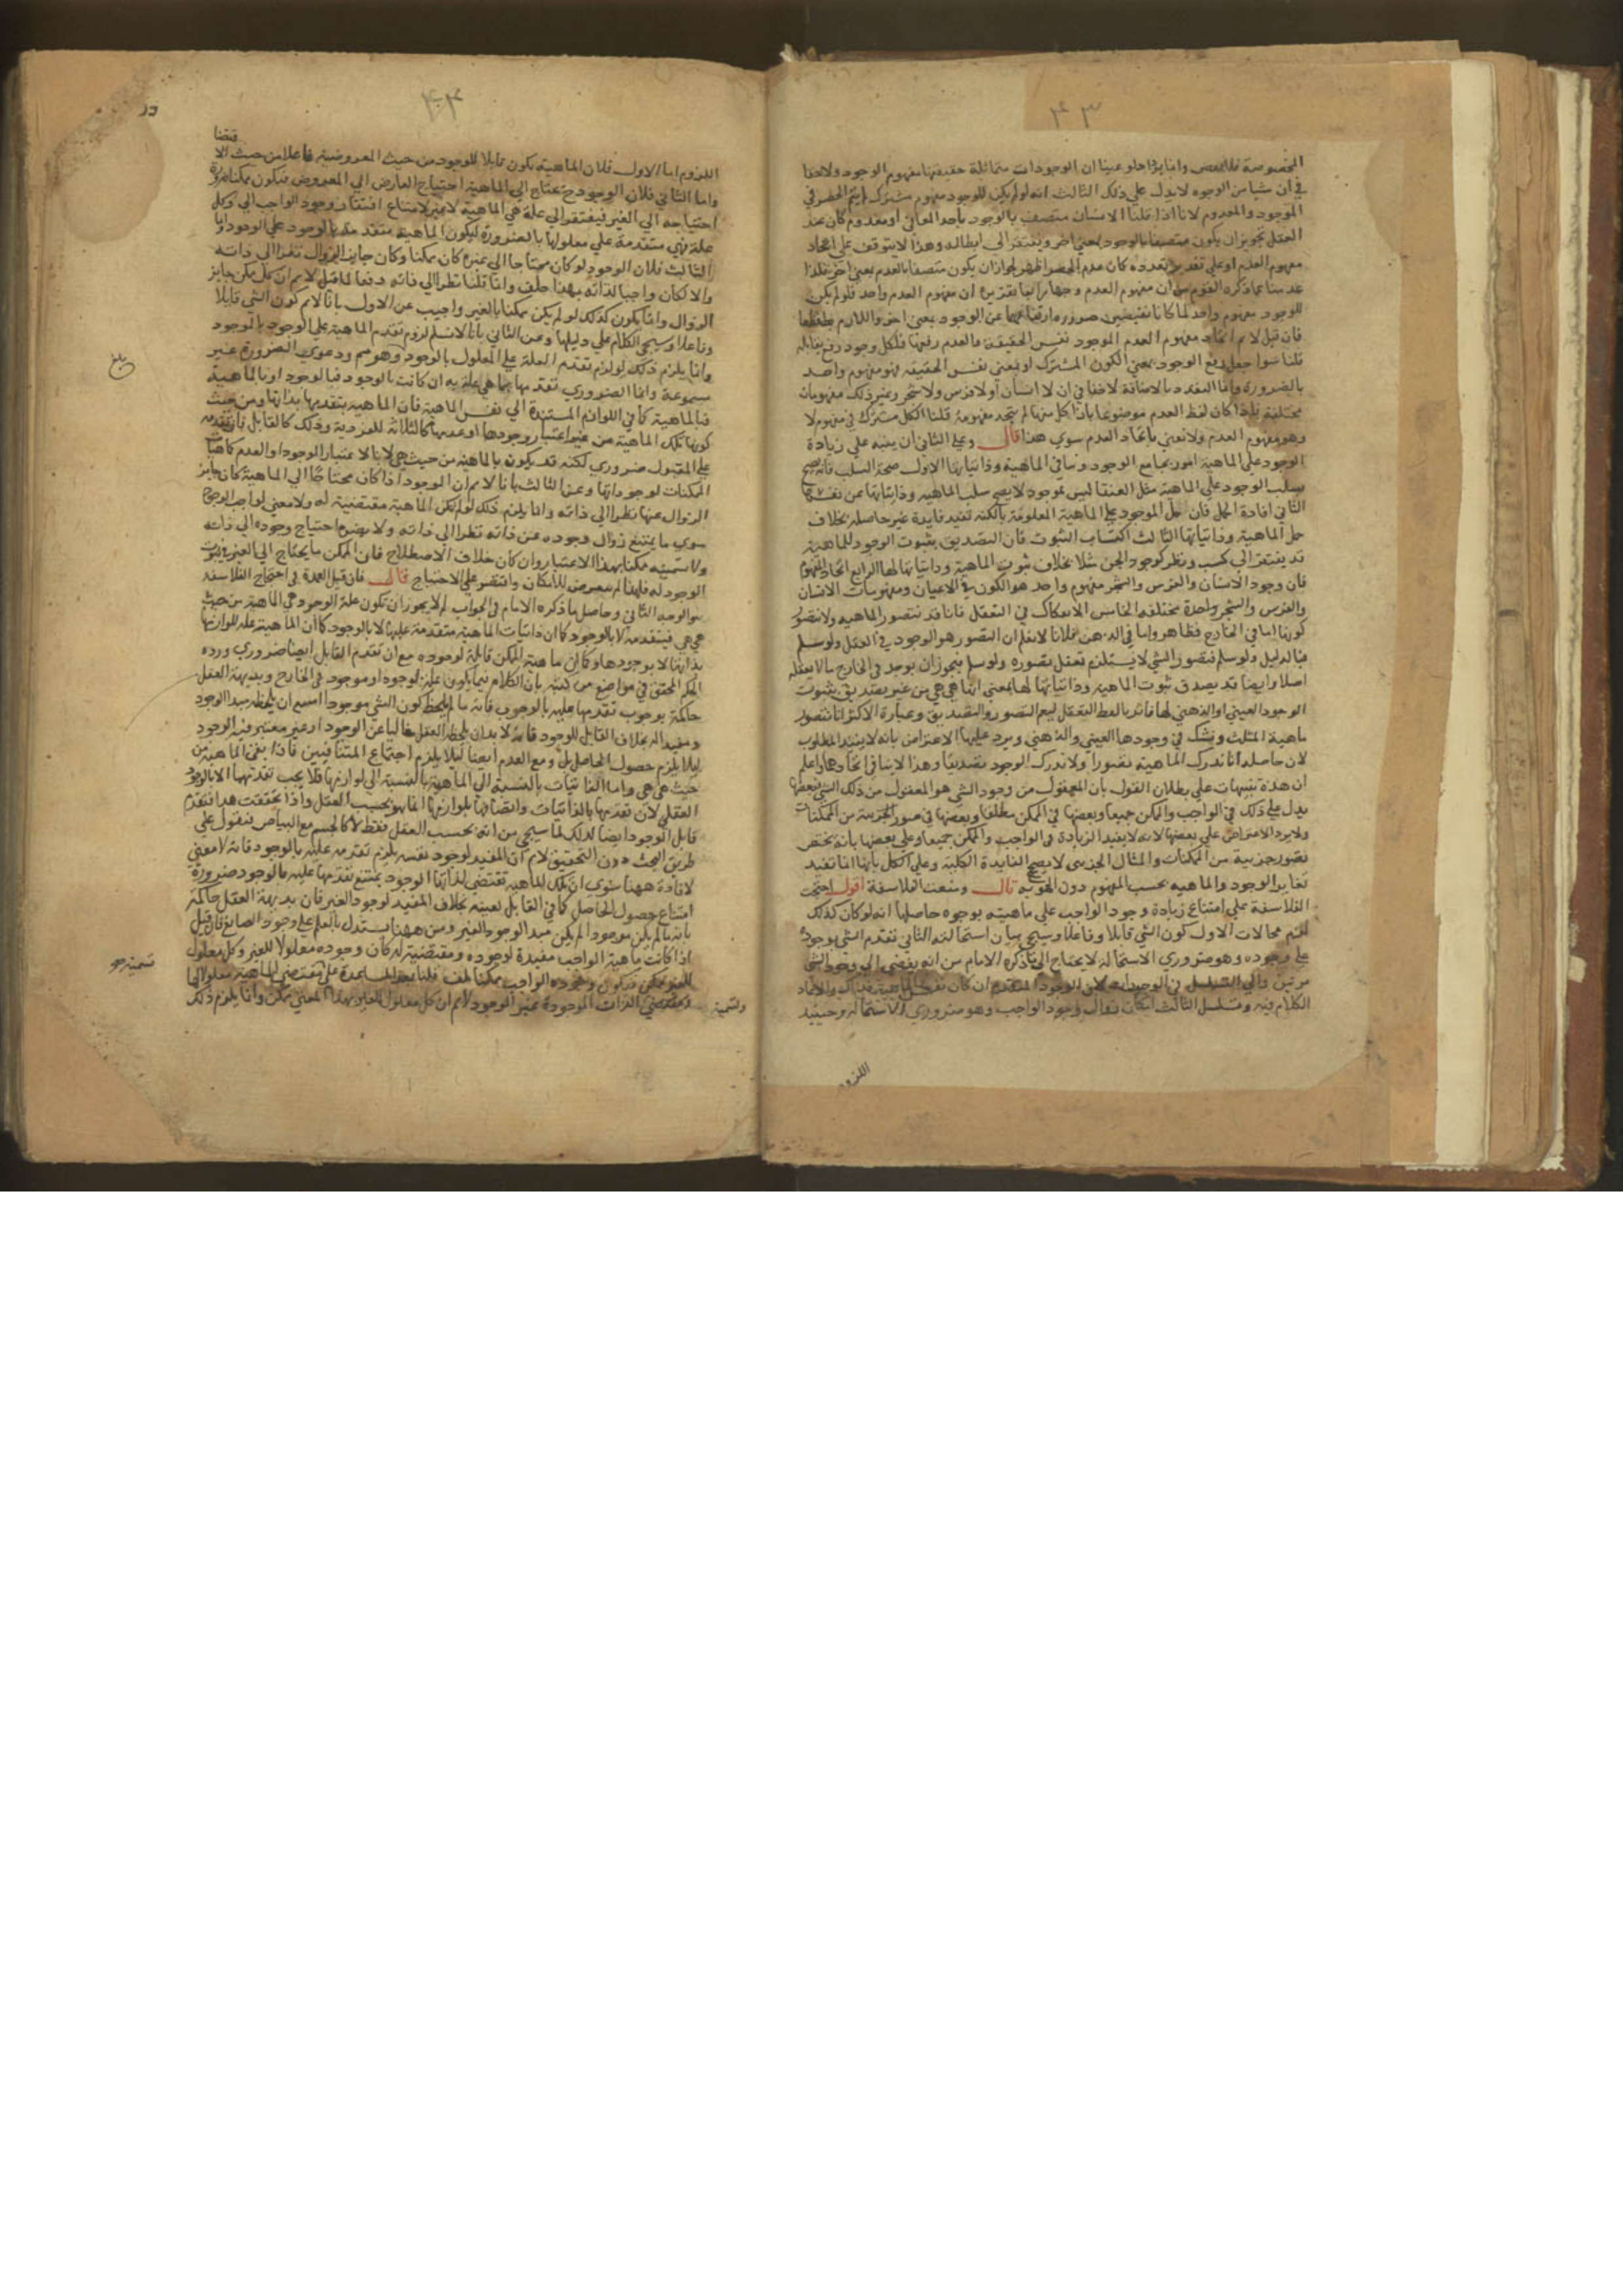 ٤٣
المخصوصة فللبعض وانما يرد لو عينا ان الوجودات متماثلة حقيقتها مفهوم الوجود ولا خفا
في ان شيا من الوجوه لا يدل علي ذلك الثالث انه لو لم يكن للوجود مفهوم مشترك لم يتم الحصر في
الموجود والمعدوم لانا اذا قلنا الانسان متصف بالوجود باحد المعاني او معدوم كان عند
العقل تجويز ان يكون متصفا بالوجود بمعني اخر ويفتقر الي ابطاله وهذا لا يتوقف علي اتحاد
مفهوم العدم اذ علي تقدير تعدده كان عدم الحصر اظهر لجواز ان يكون متصفا بالعدم بمعني اخر فلذا
عدلنا عما ذكره القوم من ان مفهوم العدم واحد فلو لم يكن
للوجود مفهوم واحد لما كانا نقيضين ضرورة ارتفاعهما عن الوجود بمعني اخر واللازم باطل قطعا
فان قيل لا نم اتحاد مفهوم العدم الموجود نفس الحقيقة والعدم رفعها فلكل وجود رفع يقابله
قلنا سوا جعل رفع الوجود بمعني الكون المشترك او بمعني نفس الحقيقة فهو مفهوم واحد
بالضرورة وانما التعدد بالاضافة لا خفا في ان لا انسان او لا فرس ولا شجر وغير ذلك مفهومات
مختلفة فاذا كان لفظ العدم موضوعا بازا كل منها لم يتحد مفهومه قلنا الكل مشترك في مفهوم لا
وهو مفهوم العدم ولا نعني باتحاد العدم سوي هذا قال وعلي الثاني ان ينبه علي زيادة
الوجود علي الماهية امور تجامع الوجود وتنافي الماهية وذاتياتها الاول صحة السلب فانه يصح
سلب الوجود علي الماهية مثل العنقا ليس بموجود لا يصح سلب الماهية وذاتياتها عن نفسها
الثاني افادة الحمل فان حمل الموجود علي الماهية المعلومة بالكنه تفيد فايدة غير حاصلة بخلاف
حمل الماهية وذاتياتها الثالث اكتساب الثبوت فان التصديق بثبوت الوجود للماهية
قد يفتقر الي كسب ونظر كوجود الجن مثلا بخلاف ثبوت الماهية وذاتياتها لها الرابع اتحاد المفهوم
فان وجود الانسان والفرس والشجر مفهوم واحد هو الكون في الاعيان ومفهومات الانسان
والفرس والشجر واحدة مختلفة الخامس الانفكاك في التعقل فانا قد نتصور الماهية ولا نتصور
كونها اما في الخارج فظاهر واما في الذهن فلانا لا نعلم ان التصور هو الوجود في العقل ولو سلم
فبالدليل ولو سلم فتصور الشي لا يستلزم تعقل تصوره ولو سلم فيجوز ان يوجد في الخارج ما لا يعقله
اصلا وايضا قد يصدق ثبوت الماهية وذاتياتها لها بمعني انها هي هي من غير تصديق بثبوت
الوجود العيني او الذهني لها فاثر بالفظ التعقل ليعم التصور والتصديق وعبارة الاكثر انا نتصور
ماهية المثلث ونشك في وجودها العيني والذهني ويرد عليها الاعتراض بانه لا يفيد المطلوب
لان حاصله انا ندرك الماهية تصورا ولا ندرك الوجود تصديقا وهذا لا ينافي اتحادهما واعلم
ان هذه تنبيهات علي بطلان القول بان المعقول من وجود الشي هو المعقول من ذلك الشي فبعضها
يدل علي ذلك في الواجب والممكن جميعا وبعضها في الممكن مطلقا وبعضها في صور جزئية من الممكنات
ولا يرد الاعتراض علي بعضها لانه لا يفيد الزيادة في الواجب والممكن جميعا وعلي بعضها بانه يختص
بصور جزئية من الممكنات والمثال الجزئي لا يصحح القاعدة الكلية وعلي الكل بانها انما تفيد
تغاير الوجود والماهية بحسب المفهوم دون الهوية قال ومنعت الفلاسفة اقول احتجت
الفلاسفة علي امتناع زيادة وجود الواجب علي ماهيته بوجوه حاصلها انه لو كان كذلك
لزم محالات الاول كون الشي قابلا وفاعلا وسيجي بيان استحالته الثاني تقدم الشي بوجوده
علي وجوده وهو ضروري الاستحالة لا يحتاج الي ما ذكره الامام من انه يفضي الي وجود الشي
مرتين والي التسلسل في الوجودات لان الوجود المتقدم ان كان نفس الماهية فذاك والا عاد
الكلام فيه وتسلسل الثالث امكان زوال وجود الواجب وهو ضروري الاستحالة وحينيذ
اللزوم
٤٤
قتضا
اللزوم اما الاول فلان الماهية يكون قابلا للوجود من حيث المعروضية فاعلا من حيث الا
واما الثاني فلان الوجود ح يحتاج الي الماهية احتياج العارض الي المعروض فيكون ممكنا ضرورة
احتياجه الي الغير فيفتقر الي علة هي الماهية لا غير لامتناع افتقار وجود الواجب الي وكل
علة فهي متقدمة علي معلولها بالضرورة ليكون الماهية متقدمة بالوجود علي الوجود واما
الثالث فلان الوجود لو كان محتاجا الي غيره كان ممكنا وكان جايز الزوال نظرا الي ذاته
والا لكان واجبا لذاته بهذا خلف وانما قلنا نظرا الي ذاته دفعا لما قيل لا نم ان كل ممكن جايز
الزوال وانما يكون كذلك لو لم يكن ممكنا بالغير واجيب عن الاول بانا لا نم كون الشي قابلا
وفاعلا وسيجي الكلام علي دليلها وعن الثاني بانا لا نسلم لزوم تقدم الماهية علي الوجود بالوجود
وانما يلزم ذلك لو لزم تقدم العلة علي المعلول بالوجود وهو مم ودعوي الضرورة غير
مسموعة وانما الضروري تقدمها بما هي علة به ان كانت بالوجود فبالوجود او بالماهية
فبالماهية كما في اللوازم المستندة الي نفس الماهية فان الماهية يتقدمها بذاتها ومن حيث
كونها تلك الماهية من غير اعتبار وجودها او عدمها كالثلاثة للفردية وذلك كالقابل فان تقدمه
علي المقبول ضروري لكنه قد يكون بالماهية من حيث هي لا باعتبار الوجود او العدم كماهيات
الممكنات لوجوداتها وعن الثالث بانا لا نم ان الوجود اذا كان محتاجا الي الماهية كان جايز
الزوال عنها نظرا الي ذاته وانما يلزم ذلك لو لم تكن الماهية مقتضية له ولا معني لواجب الوجود
سوي ما يمتنع زوال وجوده عن ذاته نظرا الي ذاته ولا يضره احتياج وجوده الي ذاته
ولا تسميته ممكنا بهذا الاعتبار وان كان خلاف الاصطلاح فان الممكن ما يحتاج الي الغير في ثبوت
الوجود له فلهذا لم يتعرض للامكان واقتصر علي الاحتياج قال فان قيل العمدة في احتجاج الفلاسفة
هو الوجه الثاني وحاصل ما ذكره الامام في الجواب لم لا يجوز ان تكون علة الوجود هي الماهية من حيث
هي هي فيتقدمه لا بالوجود كما ان ذاتيات الماهية متقدمة عليها لا بالوجود كما ان الماهية علة للوازمها
بذاتها لا بوجودها وكما ان ماهية الممكن قابلة لوجوده مع ان تقدم القابل ايضا ضروري ورده
الحكيم المحقق في مواضع من كتبه بان الكلام فيما يكون علة لوجود او موجود في الخارج وبديهة العقل
حاكمة بوجوب تقدمها عليه بالوجود فانه ما لم يلحظ كون الشي موجودا امتنع ان يلحظه مبدا للوجود
ومفيدا له بخلاف القابل للوجود فانه لا بد ان يلحظه العقل خاليا عن الوجود او غير معتبر فيه الوجود
ليلا يلزم حصول الحاصل بل ومع العدم ايضا ليلا يلزم اجتماع المتنافيين فاذا بقي الماهية من
حيث هي هي واما الذاتيات بالنسبة الي الماهية والماهية بالنسبة الي لوازمها فلا يجب تقدمها الا بالوجود
العقلي لان تقدمها بالذاتيات واتصافها بلوازمها انما هو بحسب العقل واذا تحققت هذا فتقدم
قابل الوجود ايضا لذلك لما سيجي من انه بحسب العقل فقط لا كالجسم مع البياض فنقول علي
طريق البحث دون التحقيق لا نم ان المفيد لوجود نفسه يلزم تقدمه عليه بالوجود فانه لا معني
لافادة ههنا سوي ان تلك الماهية تقتضي لذاتها الوجود يمتنع تقدمها عليه بالوجود ضرورة
امتناع حصول الحاصل كما في القابل بعينه بخلاف المفيد لوجود الغير فان بديهة العقل حاكمة
بانه ما لم يكن موجودا لم يكن مبدا لوجود الغير ومن ههنا يستدل بالعلم علي وجود الصانع فان قيل
اذا كانت ماهية الواجب مفيدة لوجوده ومقتضية له كان وجوده معلولا للغير وكل معلول
للغير ممكن فيكون وجوده الواجب ممكنا هف قلنا بعد المساعدة علي مقتضي الماهية معلولا لها
ومقتضي الذات الموجودة بغير الوجود لا نم ان كل معلول للغير بهذا المعني ممكن وانما يلزم ذلك
بلغ
تسمية هو
ولتسمية